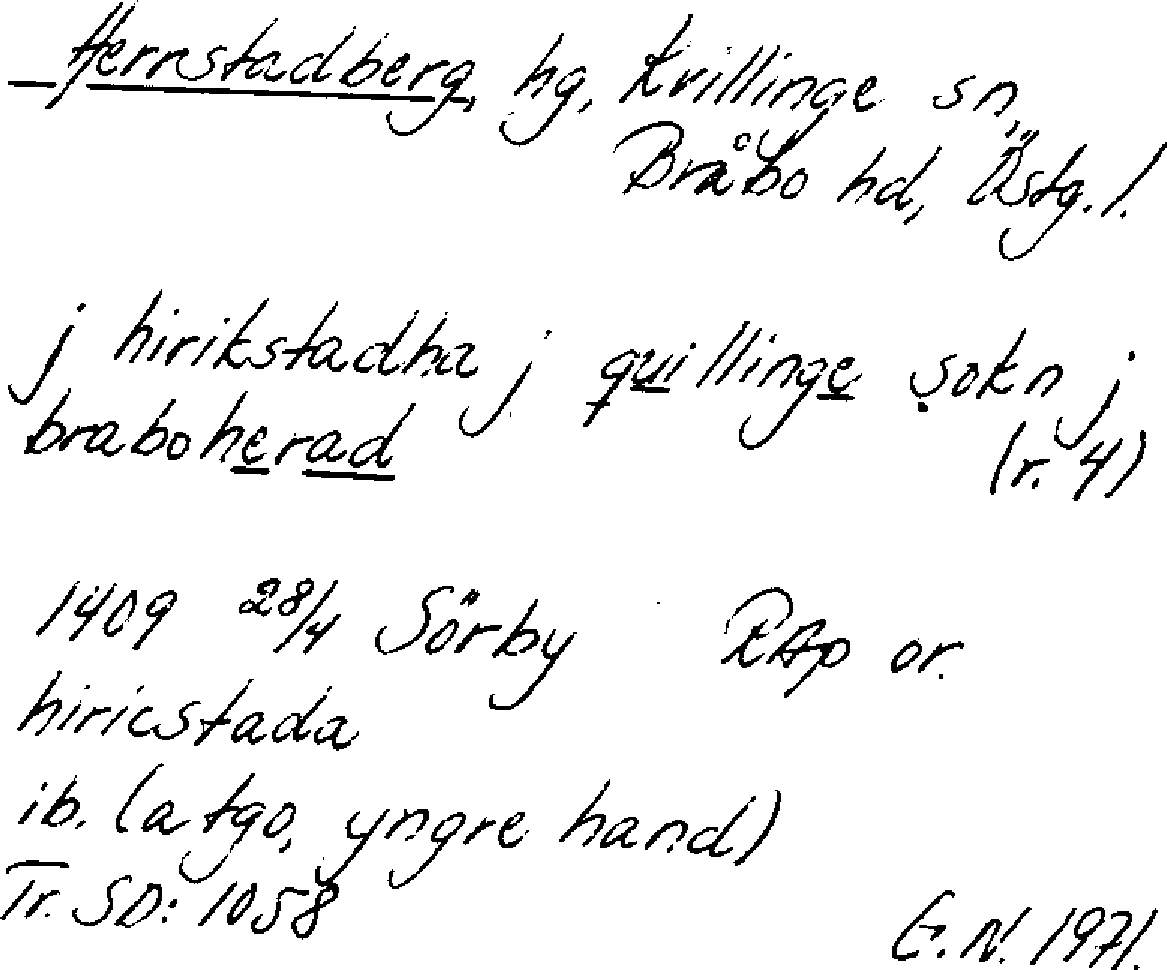 Herrstadberg, hg, Kvillinge sn,
Bråbo hd, Östg.l.
j hirikstadha j quillinge sokn j
braboherad (r. 4)
1409 28/4 Sörby RAp or.
hiricstada
ib. (a tgo, yngre hand)
Tr. SD: 1058
E.N. 1971.